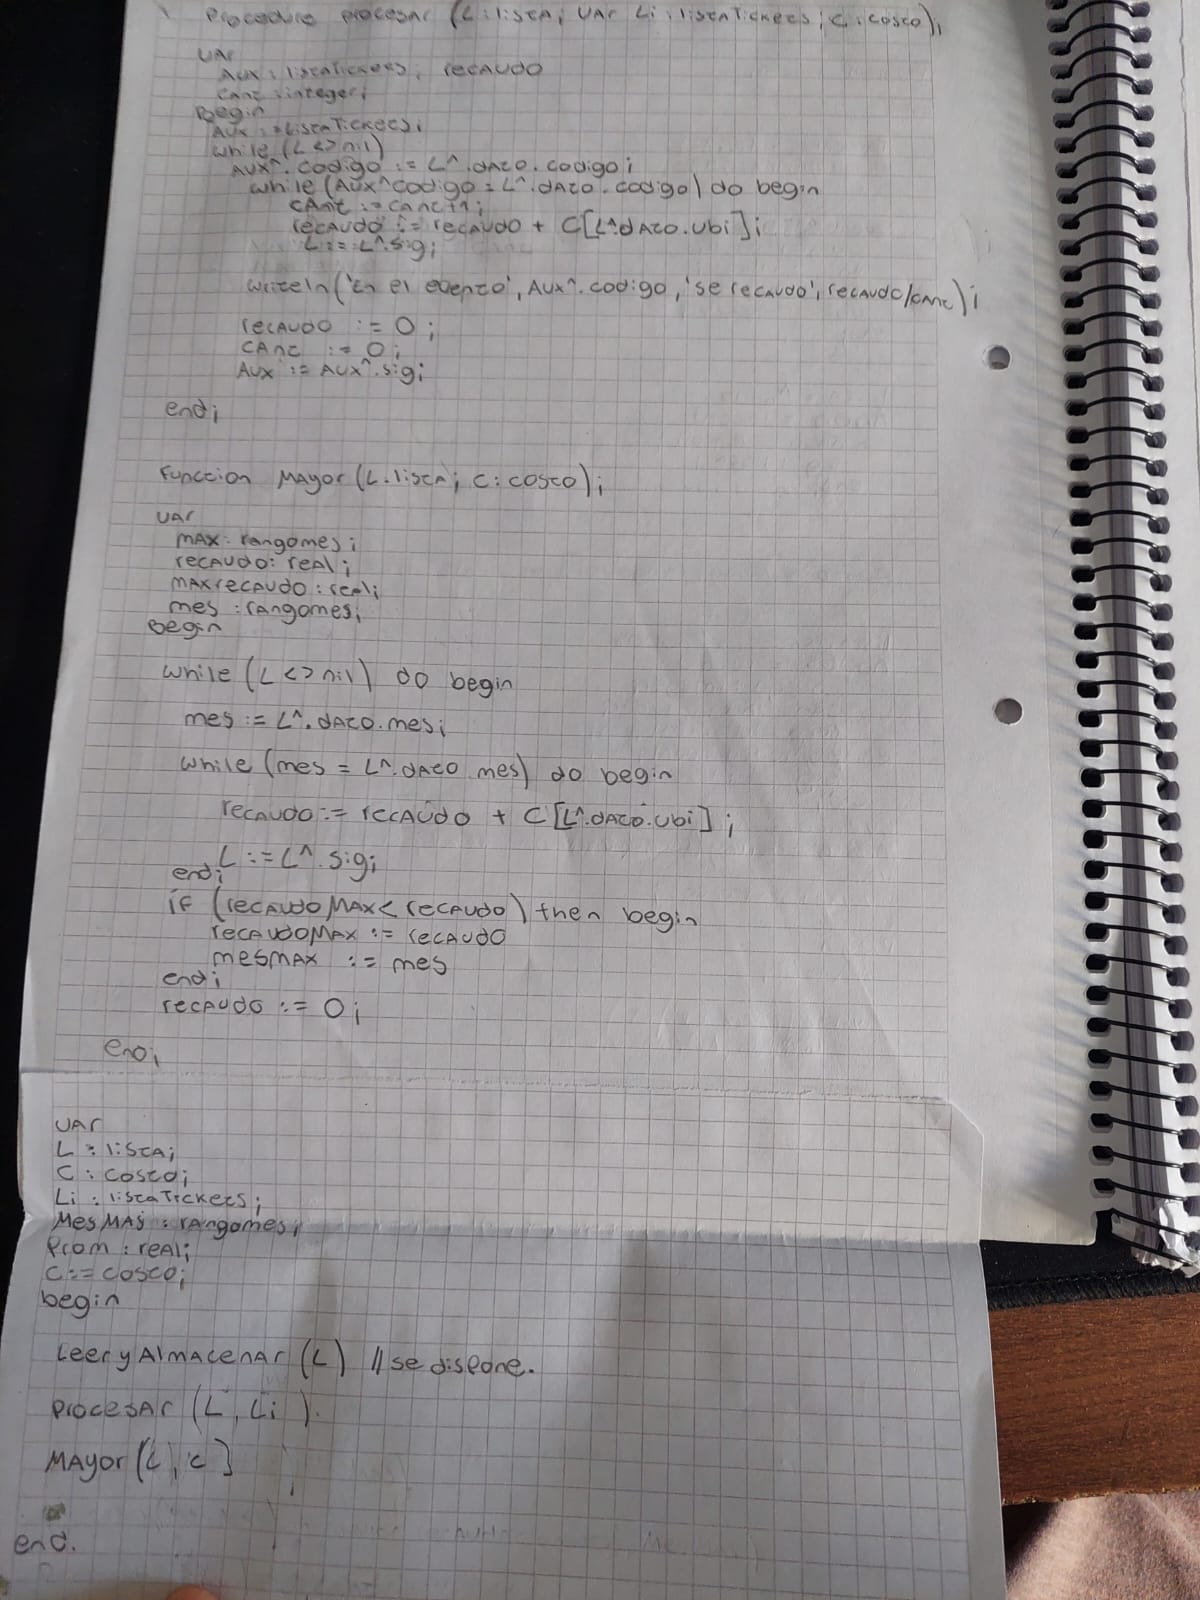 Procedure procesar (L:lista; VAR Li:listaTickets; C:costo);
VAR
AUX:listaTickets; recaudo
cant:integer;
Begin
AUX:=ListaTickets;
while (L<>nil)
AUX^.codigo := L^.dato.codigo;
while (AUX^codigo = L^.dato.codigo) do begin
cant := cant+1;
recaudo := recaudo + C[L^.dato.ubi];
L:=L^.sig;
writeln('En el evento', AUX^.codigo, 'se recaudo', recaudo/cant);
recaudo := 0;
cant := 0;
AUX := AUX^.sig;
end;
Function Mayor (L:lista; C:costo);
var
max: rangomes;
recaudo: real;
maxrecaudo: real;
mes: rangomes;
Begin
while (L<>nil) do begin
mes := L^.dato.mes;
while (mes = L^.dato.mes) do begin
recaudo := recaudo + C[L^.dato.ubi];
L:=L^.sig;
end;
if (recaudoMAX< recaudo) then begin
recaudoMAX := recaudo
mesmax := mes
end;
recaudo := 0;
end;
var
L:lista;
C:costo;
Li:listaTickets;
MesMas:rangomes;
Prom:real;
C:=costo;
begin
LeeryAlmacenar (L) //se dispone.
procesar (L, Li).
Mayor (L, c]
end.